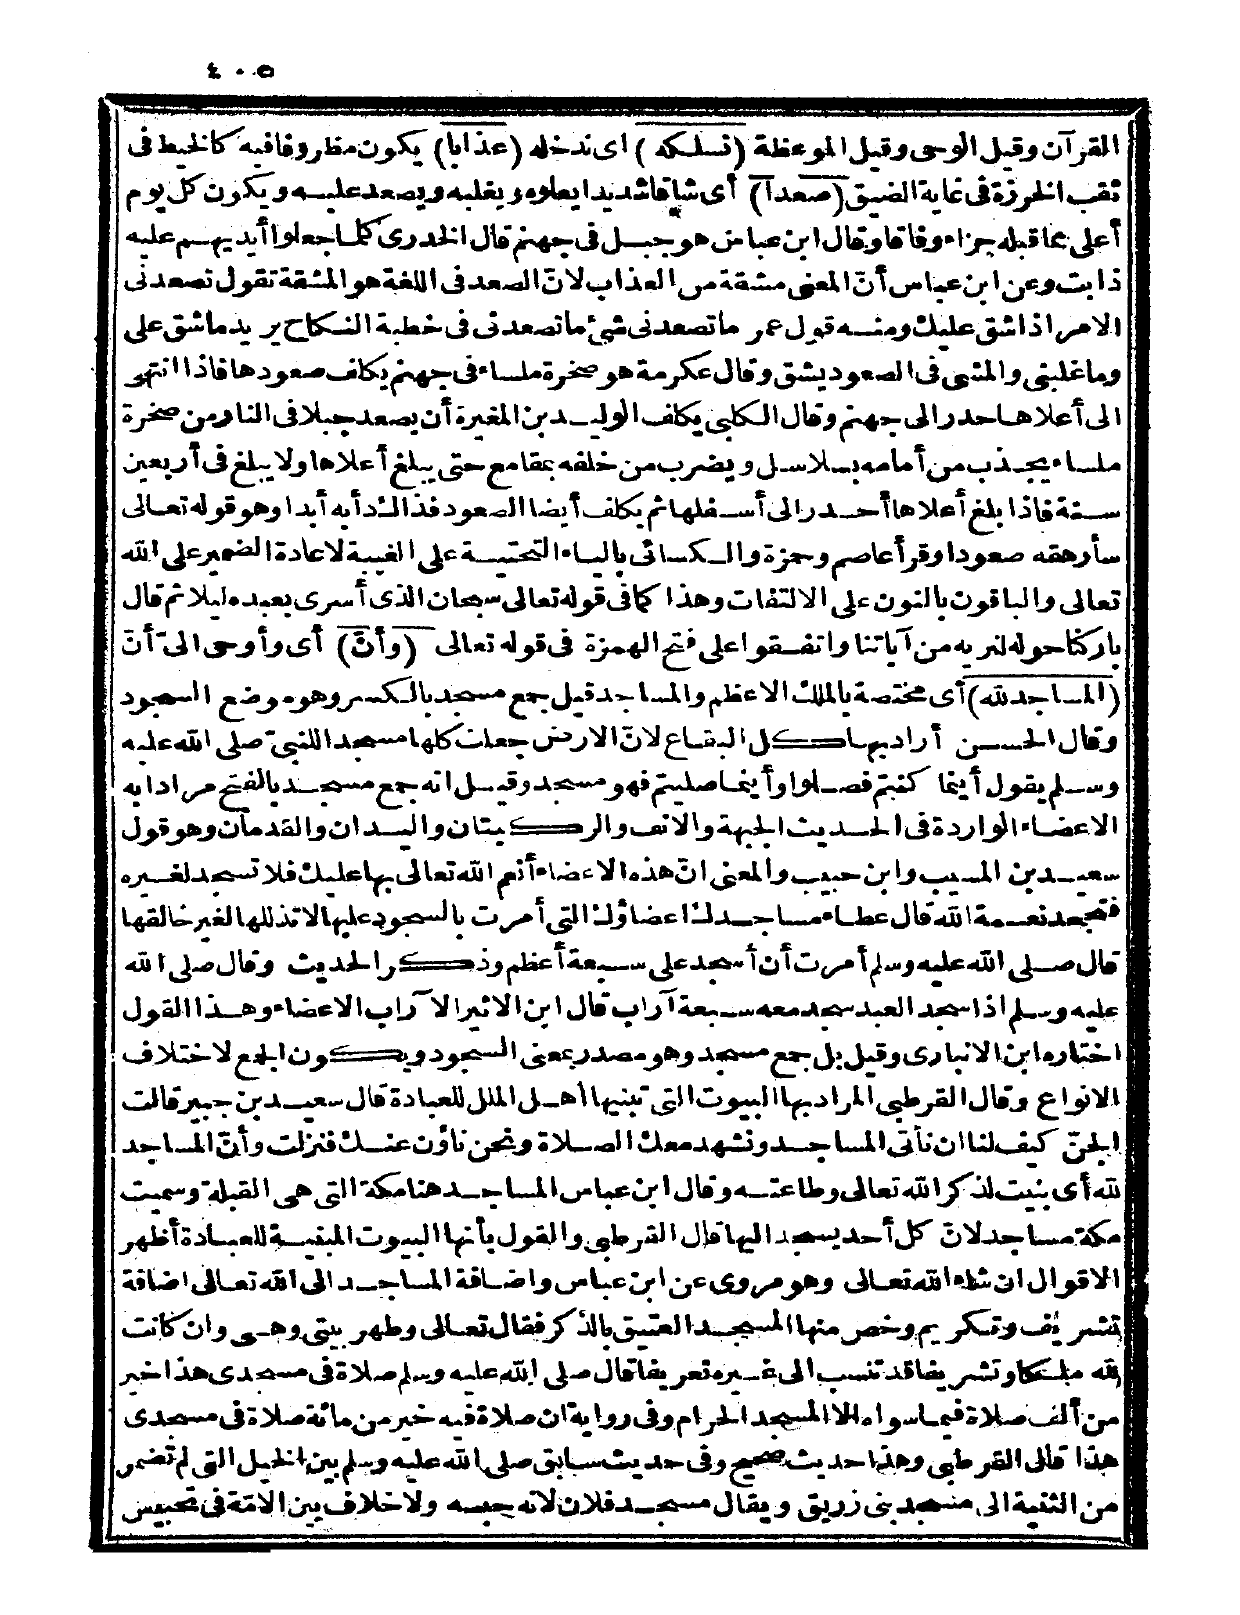 ٤٠٥
القرآن وقيل الوحى وقيل الموعظة (نسلكه) اى ندخله (عذابا) يكون مظروفا فيه كالخيط فى
ثقب الخرزة فى غاية الضيق (صعدا) أى شاقا شديدا يعلوه ويغلبه ويصعد عليه ويكون كل يوم
أعلى مما قبله جزاء وفاقا وقال ابن عباس هو جبل فى جهنم قال الخدرى كلما جعلوا أيديهم عليه
ذابت وعن ابن عباس أنّ المعنى مشقة من العذاب لانّ الصعد فى اللغة هو المشقة تقول تصعدنى
الامر اذا شق عليك ومنه قول عمر ما تصعدنى شئ ما تصعدنى فى خطبة النكاح يريد ما شق على
وما غلبنى والمشى فى الصعود يشق وقال عكرمة هو صخرة ملساء فى جهنم يكلف صعودها فاذا انتهى
الى أعلاها حدر الى جهنم وقال الكلبى يكلف الوليد بن المغيرة أن يصعد جبلا فى النار من صخرة
ملساء يجذب من أمامه بسلاسل ويضرب من خلفه بمقامع حتى يبلغ أعلاها ولا يبلغ فى أربعين
سنة فاذا بلغ أعلاها أحدر الى أسفلها ثم يكلف أيضا الصعود فذلك دأبه أبدا وهو قوله تعالى
سأرهقه صعودا وقرأ عاصم وحمزة والكسائى بالياء التحتية على الغيبة لاعادة الضمير على الله
تعالى والباقون بالنون على الالتفات وهذا كما فى قوله تعالى سبحان الذى أسرى بعبده ليلا ثم قال
باركنا حوله لنريه من آياتنا واتفقوا على فتح الهمزة فى قوله تعالى (وأنّ) أى وأوحى الىّ أنّ
(المساجد لله) أى مختصة بالملك الاعظم والمساجد قيل جمع مسجد بالكسر وهو موضع السجود
وقال الحسن أراد بها كل البقاع لانّ الارض جعلت كلها مسجدا للنبىّ صلى الله عليه
وسلم يقول أينما كنتم فصلوا وأينما صليتم فهو مسجد وقيل انه جمع مسجد بالفتح مرادا به
الاعضاء الواردة فى الحديث الجبهة والانف والركبتان واليدان والقدمان وهو قول
سعيد بن المسيب وابن حبيب والمعنى انّ هذه الاعضاء أنعم الله تعالى بها عليك فلا تسجد لغيره
فتجحد نعمة الله قال عطاء مساجدك اعضاؤك التى أمرت بالسجود عليها لا تذللها لغير خالقها
قال صلى الله عليه وسلم أمرت أن أسجد على سبعة أعظم وذكر الحديث وقال صلى الله
عليه وسلم اذا سجد العبد سجد معه سبعة آراب قال ابن الاثير الآراب الاعضاء وهذا القول
اختاره ابن الانبارى وقيل بل جمع مسجد وهو مصدر بمعنى السجود ويكون الجمع لاختلاف
الانواع وقال القرطبى المراد بها البيوت التى تبنيها أهل الملل للعبادة قال سعيد بن جبير قالت
الجنّ كيف لنا ان نأتى المساجد ونشهد معك الصلاة ونحن ناؤن عنك فنزلت وأنّ المساجد
لله أى بنيت لذكر الله تعالى وطاعته وقال ابن عباس المساجد هنا مكة التى هى القبلة وسميت
مكة مساجد لانّ كل أحد يسجد اليها قال القرطبى والقول بأنها البيوت المبنية للعبادة أظهر
الاقوال ان شاء الله تعالى وهو مروى عن ابن عباس واضافة المساجد الى الله تعالى اضافة
تشريف وتكريم وخص منها المسجد العتيق بالذكر فقال تعالى وطهر بيتى وهى وان كانت
لله ملكا وتشريفا قد تنسب الى غيره تعريفا قال صلى الله عليه وسلم صلاة فى مسجدى هذا خير
من ألف صلاة فيما سواه الا المسجد الحرام وفى رواية ان صلاة فيه خير من مائة صلاة فى مسجدى
هذا قال القرطبى وهذا حديث صحيح وفى حديث سابق صلى الله عليه وسلم بين الخيل التى لم تضمر
من الثنية الى مسجد بنى زريق ويقال مسجد فلان لانه حبسه ولا خلاف بين الامّة فى تحبيس